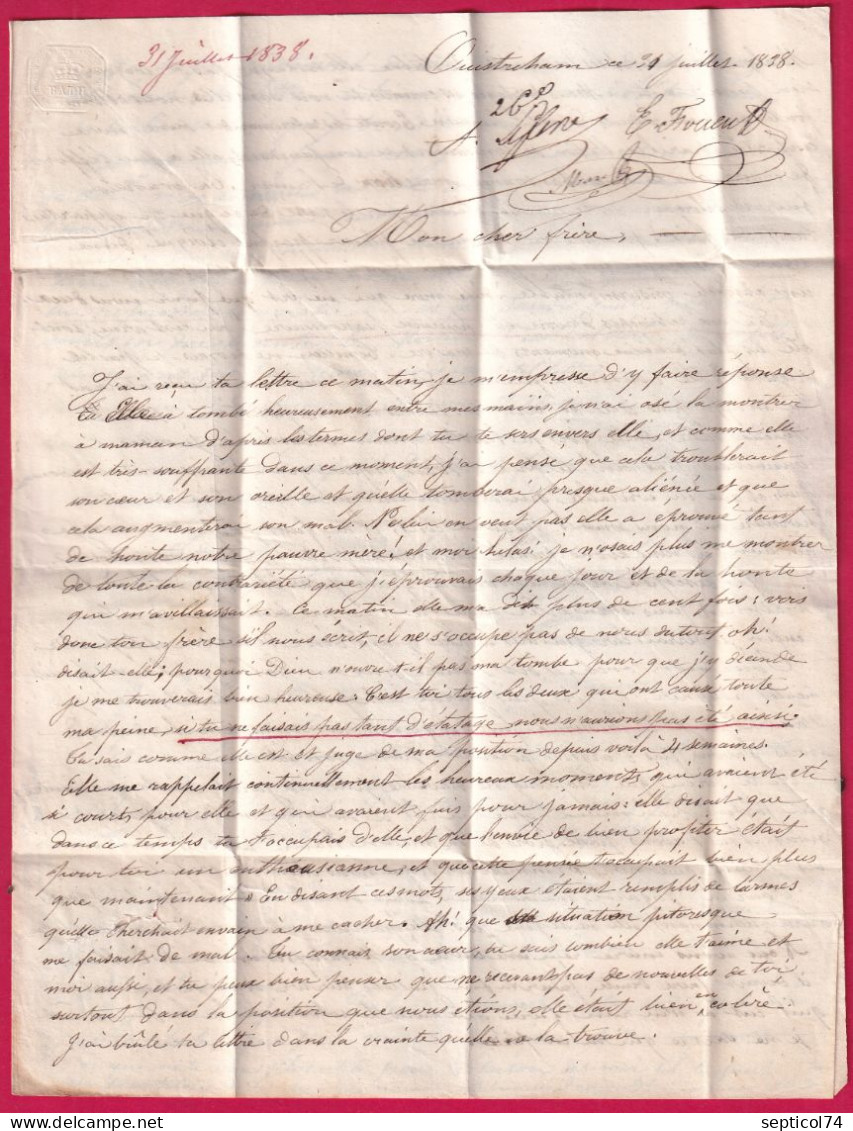 31 Juillet 1838.
BATH
Ouistreham ce 31 juillet 1838.
Mon cher frère,
J'ai reçu ta lettre ce matin, je m'empresse d'y faire réponse
à tombé heureusement entre mes mains, je n'ai osé la montrer
à maman d'après les termes dont tu te sers envers elle, et comme elle
est très-souffrante dans ce moment, j'ai pensé que cela troublerait
son cœur et son oreille et qu'elle tomberai presque aliénée et que
cela augmenterai son mal. Ne lui en veut pas elle a éprouvé tant
de honte notre pauvre mère! et moi helas! je n'osais plus me montrer
de toute la contrariété que j'éprouvais chaque jour et de la honte
qui m'avillaissait. Ce matin elle ma dit plus de cent fois: vers
donc ton frère s'il nous écrit, il ne s'occupe pas de nous du tout oh!
disait-elle; pourquoi Dieu n'ouvre t-il pas ma tombe pour que j'y décende
je me trouverais bien heureuse. C'est toi tous les deux qui ont causé toute
ma peine, si tu ne faisais pas tant d'étalage nous n'aurions pas été ainsi.
Tu sais comme elle est et juge de ma position depuis voilà 4 semaines.
Elle me rappelait continuellement les heureux moments qui avaient été
si courts pour elle et qui avaient fuis pour jamais: elle disait que
dans ce temps tu t'occupais d'elle, et que l'envie de bien profiter était
pour toi un enthousiasme, et que cette pensée t'occupait bien plus
que maintenant. En disant ces mots, ses yeux étaient remplis de larmes
qu'elle cherchait en vain à me cacher. Ah! que situation pitoresque
me faisait de mal. Tu connais son cœur, tu sais combien elle t'aime et
moi aussi, et tu peux bien penser que ne recevant pas de nouvelles de toi,
surtout dans la position que nous étions, elle était bien en colère.
J'ai brûlé ta lettre dans la crainte qu'elle la trouve.
septicol74